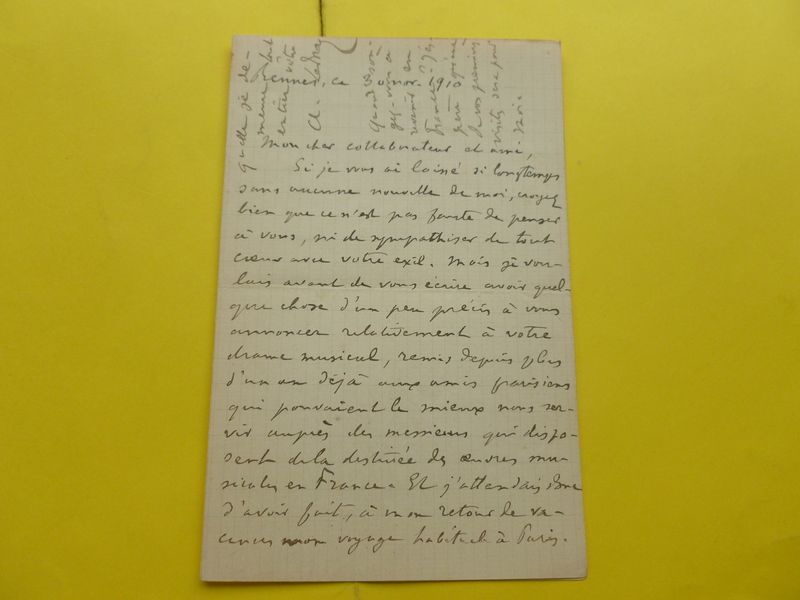 Rennes, ce nov. 1910
Mon cher collaborateur et ami,
Si je vous ai laissé si longtemps
sans aucune nouvelle de moi, croyez
bien que ce n'est pas faute de penser
à vous, ni de sympathiser de tout
cœur avec votre exil. Mais je vou-
lais avant de vous écrire avoir quel-
que chose d'un peu précis à vous
annoncer relativement à votre
drame musical, remis depuis plus
d'un an déjà aux amis parisiens
qui pouvaient le mieux nous ser-
vir auprès des messieurs qui dispo-
sent de la destinée des œuvres mu-
sicales en France. Et j'attendais donc
d'avoir fait, à mon retour de va-
cances mon voyage habituel à Paris.
quelle je de-
meure tout
entier votre
A.
Quand son-
gez-vous à
revenir en
France ? J'es-
père qu'une
de vos premières
visites sera pour
moi.